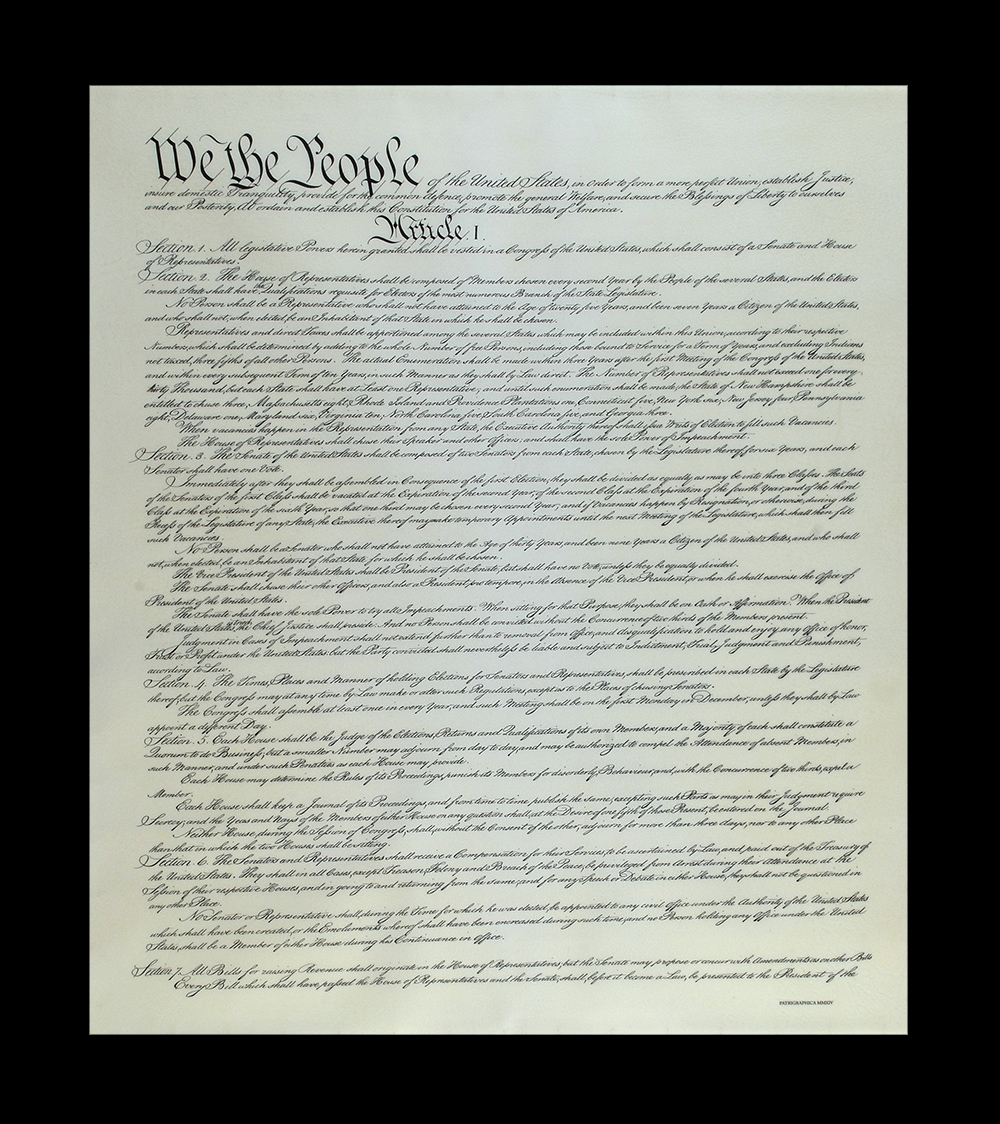 We the People of the United States, in Order to form a more perfect Union, establish Justice,
insure domestic Tranquility, provide for the common defence, promote the general Welfare, and secure the Blessings of Liberty to ourselves
and our Posterity, do ordain and establish this Constitution for the United States of America.
Article. I.
Section. 1. All legislative Powers herein granted shall be vested in a Congress of the United States, which shall consist of a Senate and House
of Representatives.
Section. 2. The House of Representatives shall be composed of Members chosen every second Year by the People of the several States, and the Electors
in each State shall have the Qualifications requisite for Electors of the most numerous Branch of the State Legislature.
No Person shall be a Representative who shall not have attained to the Age of twenty five Years, and been seven Years a Citizen of the United States,
and who shall not, when elected, be an Inhabitant of that State in which he shall be chosen.
Representatives and direct Taxes shall be apportioned among the several States which may be included within this Union, according to their respective
Numbers, which shall be determined by adding to the whole Number of free Persons, including those bound to Service for a Term of Years, and excluding Indians
not taxed, three fifths of all other Persons. The actual Enumeration shall be made within three Years after the first Meeting of the Congress of the United States,
and within every subsequent Term of ten Years, in such Manner as they shall by Law direct. The Number of Representatives shall not exceed one for every
thirty Thousand, but each State shall have at Least one Representative; and until such enumeration shall be made, the State of New Hampshire shall be
entitled to chuse three, Massachusetts eight, Rhode Island and Providence Plantations one, Connecticut five, New York six, New Jersey four, Pennsylvania
eight, Delaware one, Maryland six, Virginia ten, North Carolina five, South Carolina five, and Georgia three.
When vacancies happen in the Representation from any State, the Executive Authority thereof shall issue Writs of Election to fill such Vacancies.
The House of Representatives shall chuse their Speaker and other Officers; and shall have the sole Power of Impeachment.
Section. 3. The Senate of the United States shall be composed of two Senators from each State, chosen by the Legislature thereof, for six Years; and each
Senator shall have one Vote.
Immediately after they shall be assembled in Consequence of the first Election, they shall be divided as equally as may be into three Classes. The Seats
of the Senators of the first Class shall be vacated at the Expiration of the second Year, of the second Class at the Expiration of the fourth Year, and of the third
Class at the Expiration of the sixth Year, so that one third may be chosen every second Year; and if Vacancies happen by Resignation, or otherwise, during the
Recess of the Legislature of any State, the Executive thereof may make temporary Appointments until the next Meeting of the Legislature, which shall then fill
such Vacancies.
No Person shall be a Senator who shall not have attained to the Age of thirty Years, and been nine Years a Citizen of the United States, and who shall
not, when elected, be an Inhabitant of that State for which he shall be chosen.
The Vice President of the United States shall be President of the Senate, but shall have no Vote, unless they be equally divided.
The Senate shall chuse their other Officers, and also a President pro tempore, in the Absence of the Vice President, or when he shall exercise the Office of
President of the United States.
The Senate shall have the sole Power to try all Impeachments. When sitting for that Purpose, they shall be on Oath or Affirmation. When the President
of the United States is tried, the Chief Justice shall preside: And no Person shall be convicted without the Concurrence of two thirds of the Members present.
Judgment in Cases of Impeachment shall not extend further than to removal from Office, and disqualification to hold and enjoy any Office of honor,
Trust or Profit under the United States: but the Party convicted shall nevertheless be liable and subject to Indictment, Trial, Judgment and Punishment,
according to Law.
Section. 4. The Times, Places and Manner of holding Elections for Senators and Representatives, shall be prescribed in each State by the Legislature
thereof; but the Congress may at any time by Law make or alter such Regulations, except as to the Places of chusing Senators.
The Congress shall assemble at least once in every Year, and such Meeting shall be on the first Monday in December, unless they shall by Law
appoint a different Day.
Section. 5. Each House shall be the Judge of the Elections, Returns and Qualifications of its own Members, and a Majority of each shall constitute a
Quorum to do Business; but a smaller Number may adjourn from day to day, and may be authorized to compel the Attendance of absent Members, in
such Manner, and under such Penalties as each House may provide.
Each House may determine the Rules of its Proceedings, punish its Members for disorderly Behaviour, and, with the Concurrence of two thirds, expel a
Member.
Each House shall keep a Journal of its Proceedings, and from time to time publish the same, excepting such Parts as may in their Judgment require
Secrecy; and the Yeas and Nays of the Members of either House on any question shall, at the Desire of one fifth of those Present, be entered on the Journal.
Neither House, during the Session of Congress, shall, without the Consent of the other, adjourn for more than three days, nor to any other Place
than that in which the two Houses shall be sitting.
Section. 6. The Senators and Representatives shall receive a Compensation for their Services, to be ascertained by Law, and paid out of the Treasury of
the United States. They shall in all Cases, except Treason, Felony and Breach of the Peace, be privileged from Arrest during their Attendance at the
Session of their respective Houses, and in going to and returning from the same; and for any Speech or Debate in either House, they shall not be questioned in
any other Place.
No Senator or Representative shall, during the Time for which he was elected, be appointed to any civil Office under the Authority of the United States
which shall have been created, or the Emoluments whereof shall have been encreased during such time; and no Person holding any Office under the United
States, shall be a Member of either House during his Continuance in Office.
Section. 7. All Bills for raising Revenue shall originate in the House of Representatives; but the Senate may propose or concur with Amendments as on other Bills
Every Bill which shall have passed the House of Representatives and the Senate, shall, before it become a Law, be presented to the President of the
PATRIGRAPHICA MMXIV